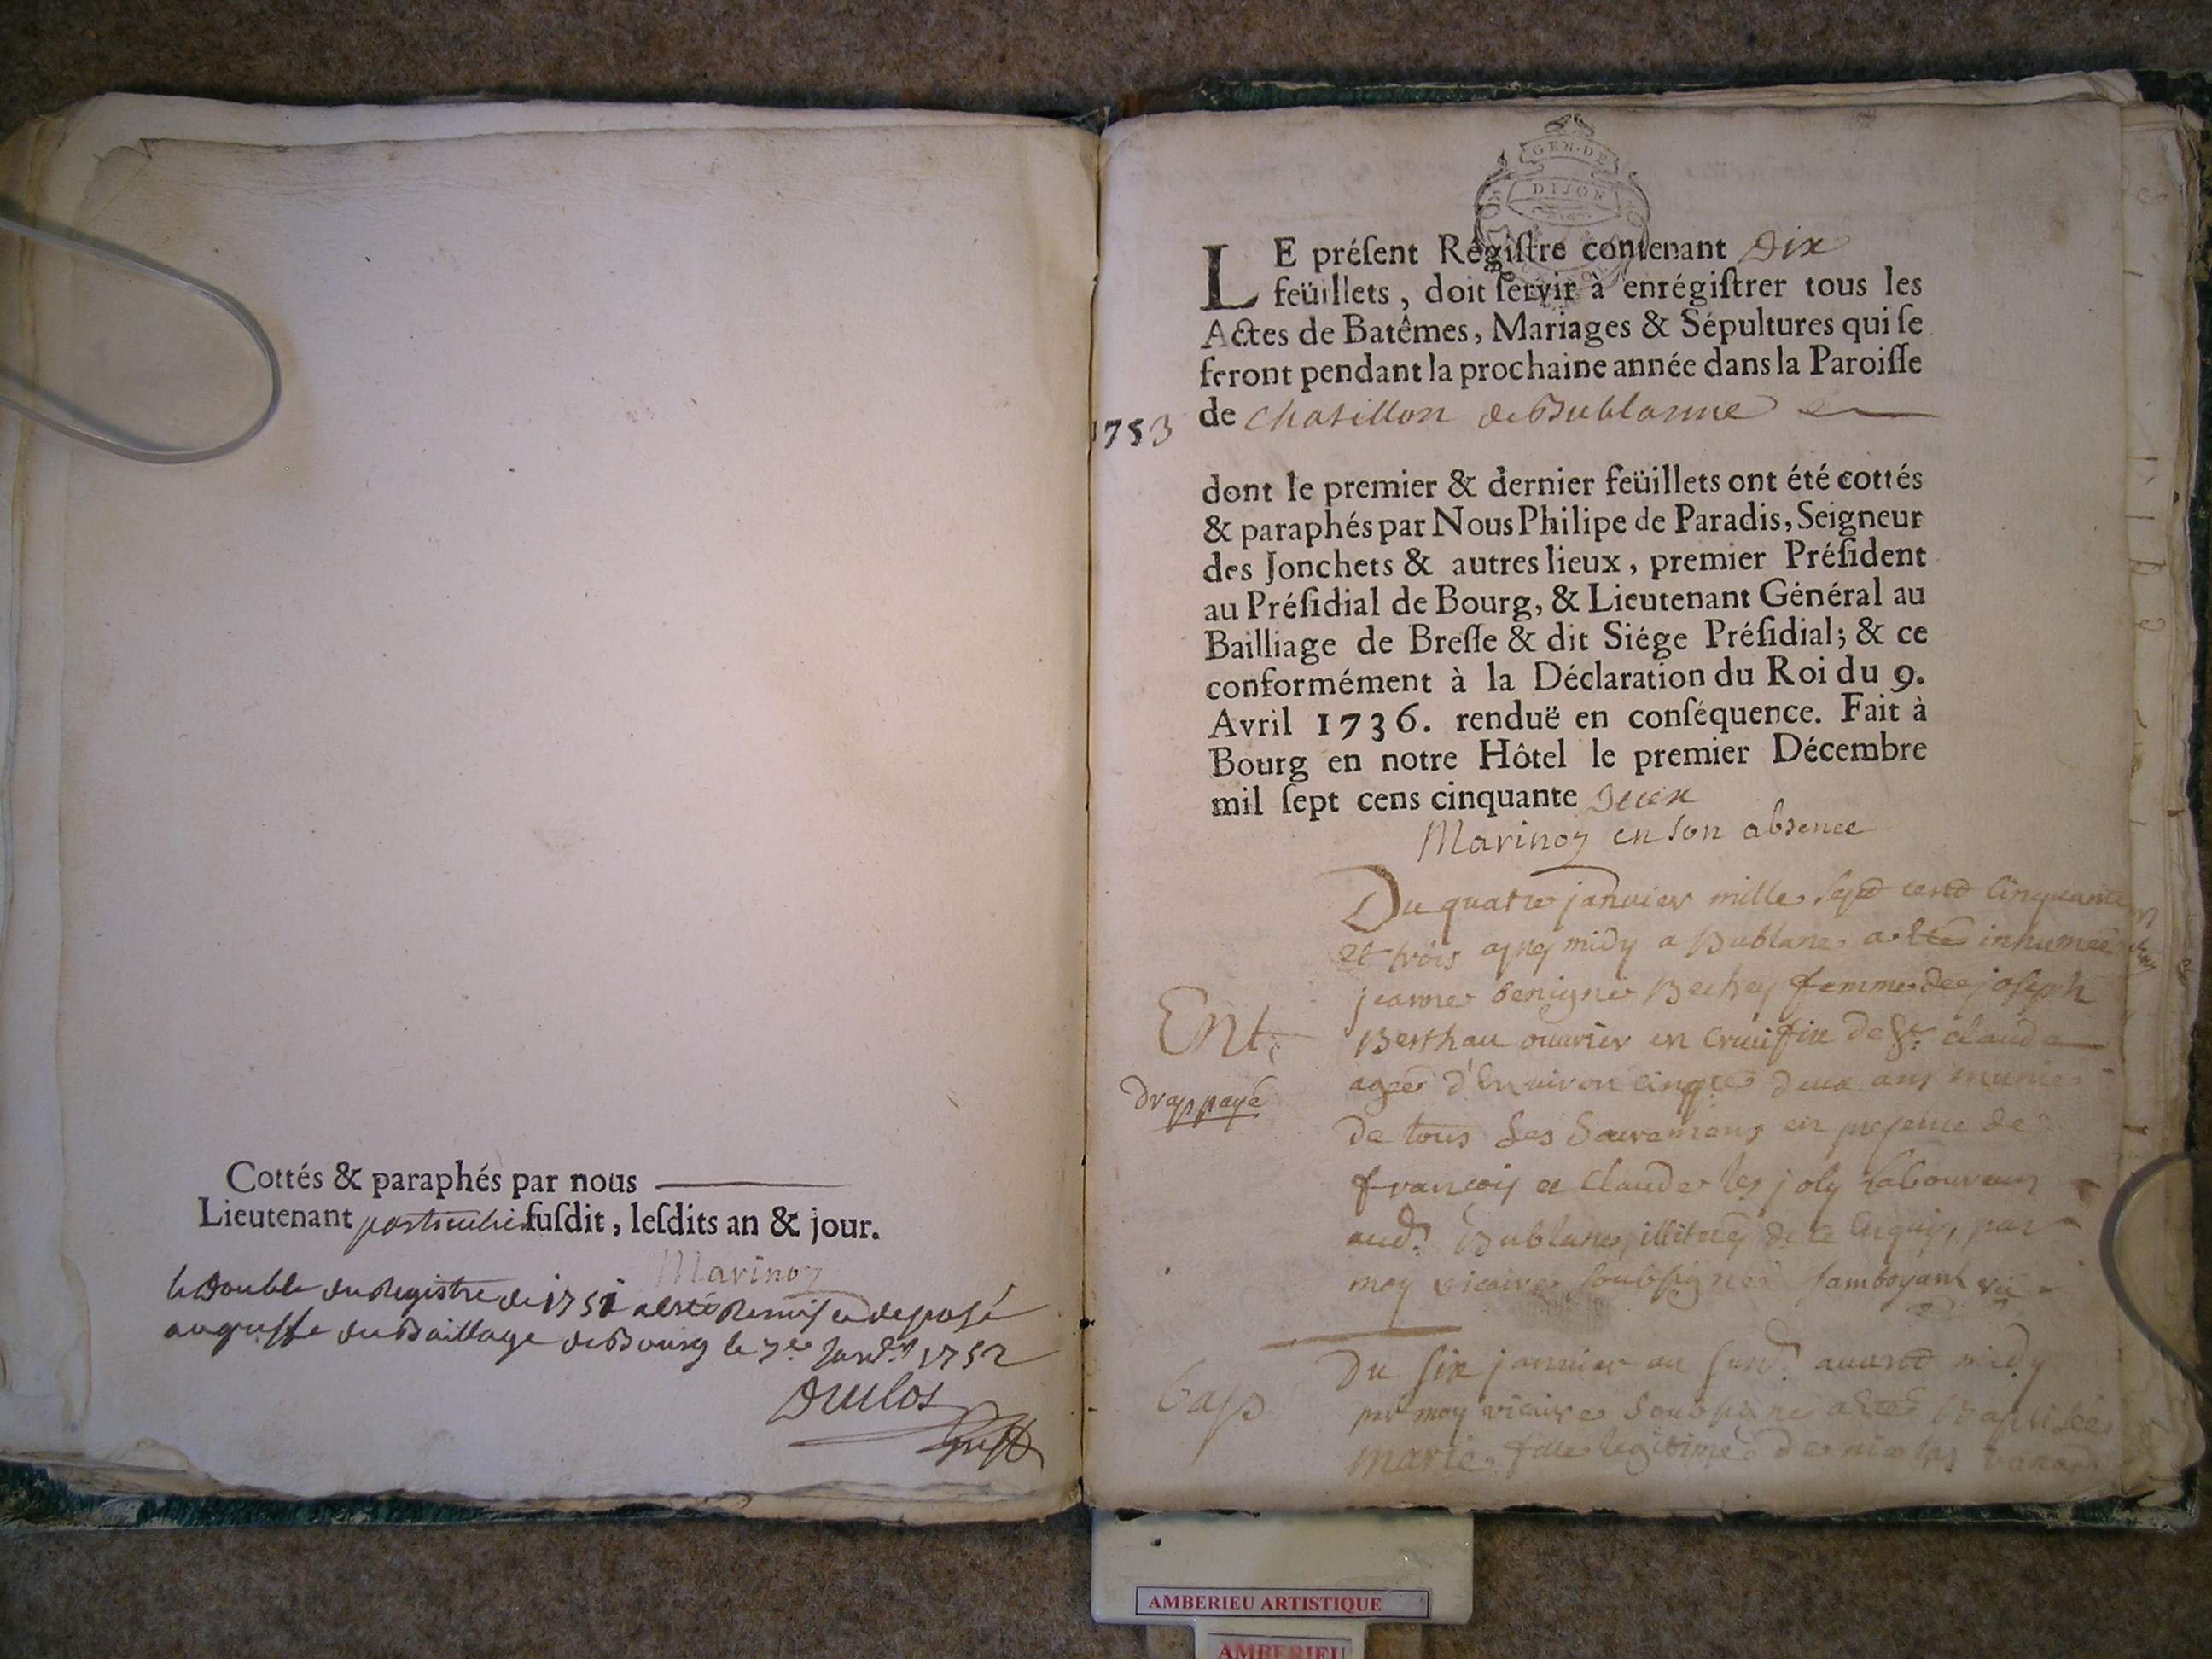 Cottés & paraphés par nous
Lieutenant particulier ſuſdit, leſdits an & jour.
Marinoz
le Double du Registre de 1751 a esté Remis et deposé
au greffe du Baillage de Bourg le 7e Janv.r 1752
GEN·DE
DIJON
LE préſent Régiſtre contenant Dix
feüillets, doit ſervir à enrégiſtrer tous les
Actes de Batêmes, Mariages & Sépultures qui ſe
feront pendant la prochaine année dans la Paroiſſe
de Chatillon de Bublanne
1753
dont le premier & dernier feüillets ont été cottés
& paraphés par Nous Philipe de Paradis, Seigneur
des Jonchets & autres lieux, premier Préſident
au Préſidial de Bourg, & Lieutenant Général au
Bailliage de Breſſe & dit Siége Préſidial; & ce
conformément à la Déclaration du Roi du 9.
Avril 1736. renduë en conſéquence. Fait à
Bourg en notre Hôtel le premier Décembre
mil ſept cens cinquante Deux
Marinoz en son absence
Du quatre janvier mille sept cent cinquante
et trois apres midy a Bublane a ete inhumée
jeanne benigne femme de joseph
Berthau ouvrier en crucifix de St claude
Ent.
agée d'environ cinqte deux ans munie
drap payé
de tous Les Sacremens en presence de
françois et Claude les joly Laboureurs
aud. Bublane, illiterés de ce enquis, par
moy vicaire soubsigné Jamboyant vic
Du six janvier an susd. avant midy
bap
par moy vicaire Soubsigné a ete Baptisée
marie fille legitime de nicolas
AMBERIEU ARTISTIQUE
AMBERIEU